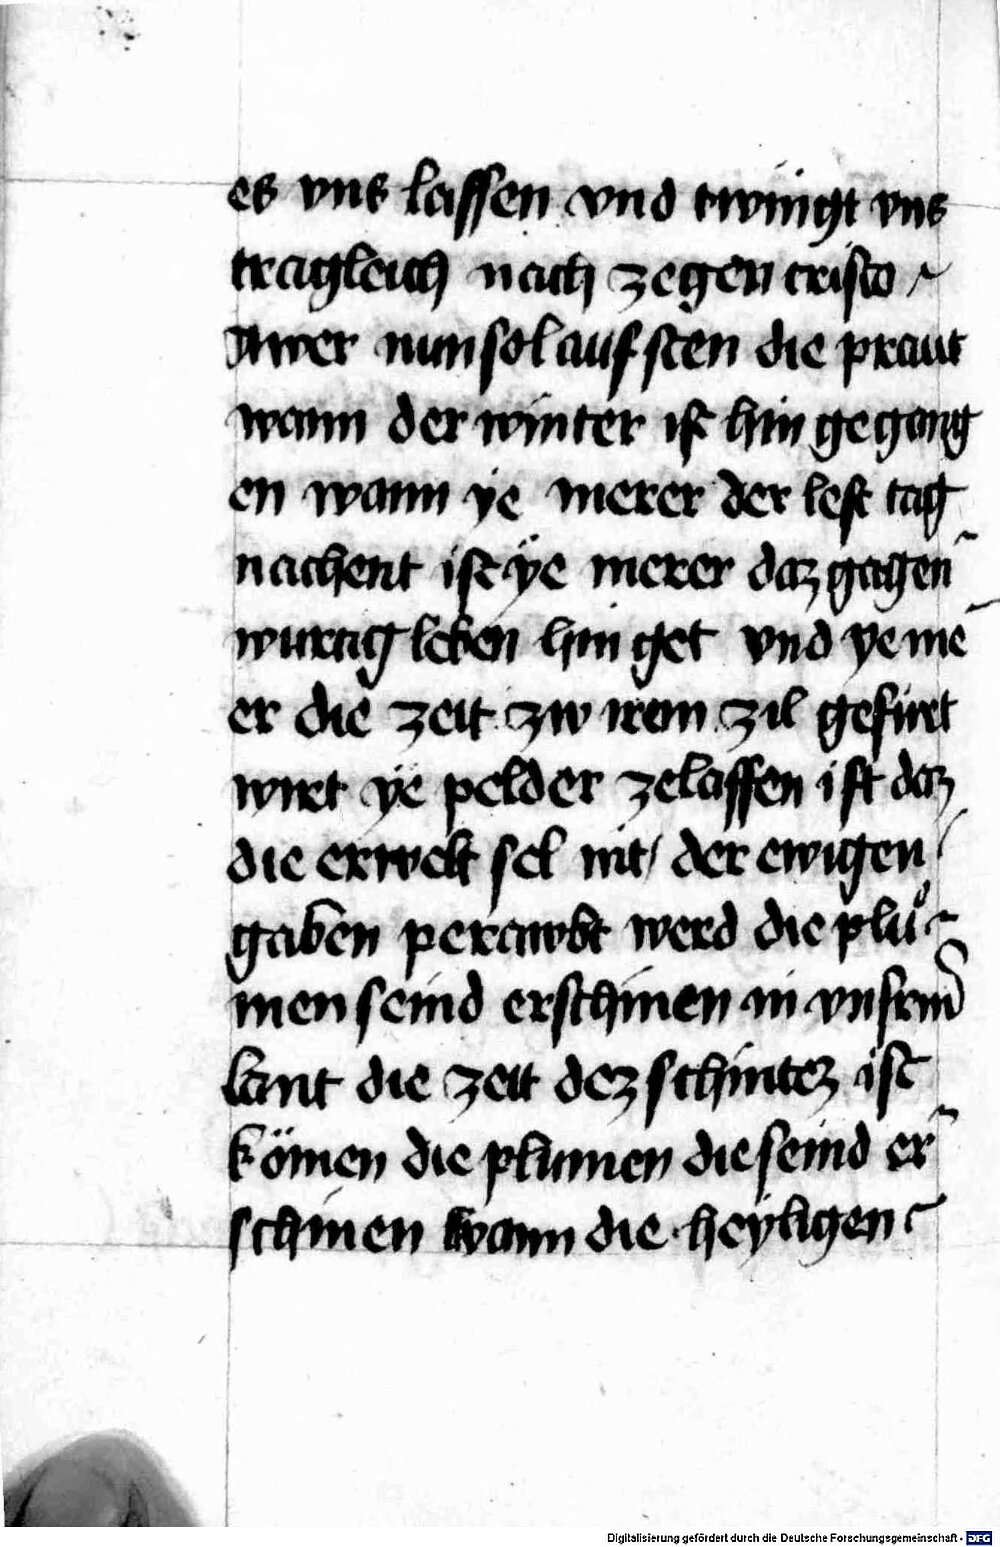 es vns lassen vnd twingt vns
tragleich nach zegen cristo
Awer nun sol auf sten die praut
wann der winter ist hin gegang
en wann ye merer der lest tag
nachent ist ÿe merer daz gagen
wurtig leben hin get vnd ye me
er die zeit zw irem zil gefurt
wirt ÿe pelder zelassen ist daz
die erwelt sel mit der ewigen
gaben perawbt werd die plu
men seind erschinen in vnserm
lant die zeit dez schnitez ist
kömen die plumen die seind er
schinen wann die heyligen
Digitalisierung gefördert durch die Deutsche Forschungsgemeinschaft - DFG